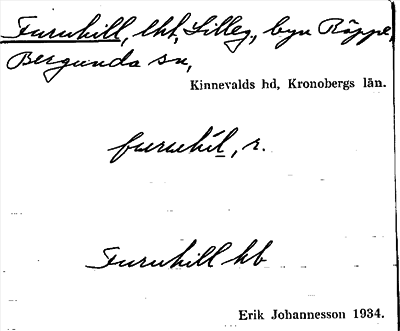 Furuhill, lht, Lilleg, byn Räppe,
Bergunda sn,
Kinnevalds hd, Kronobergs län.
furuhil, r.
Furuhill hb
Erik Johannesson 1934.